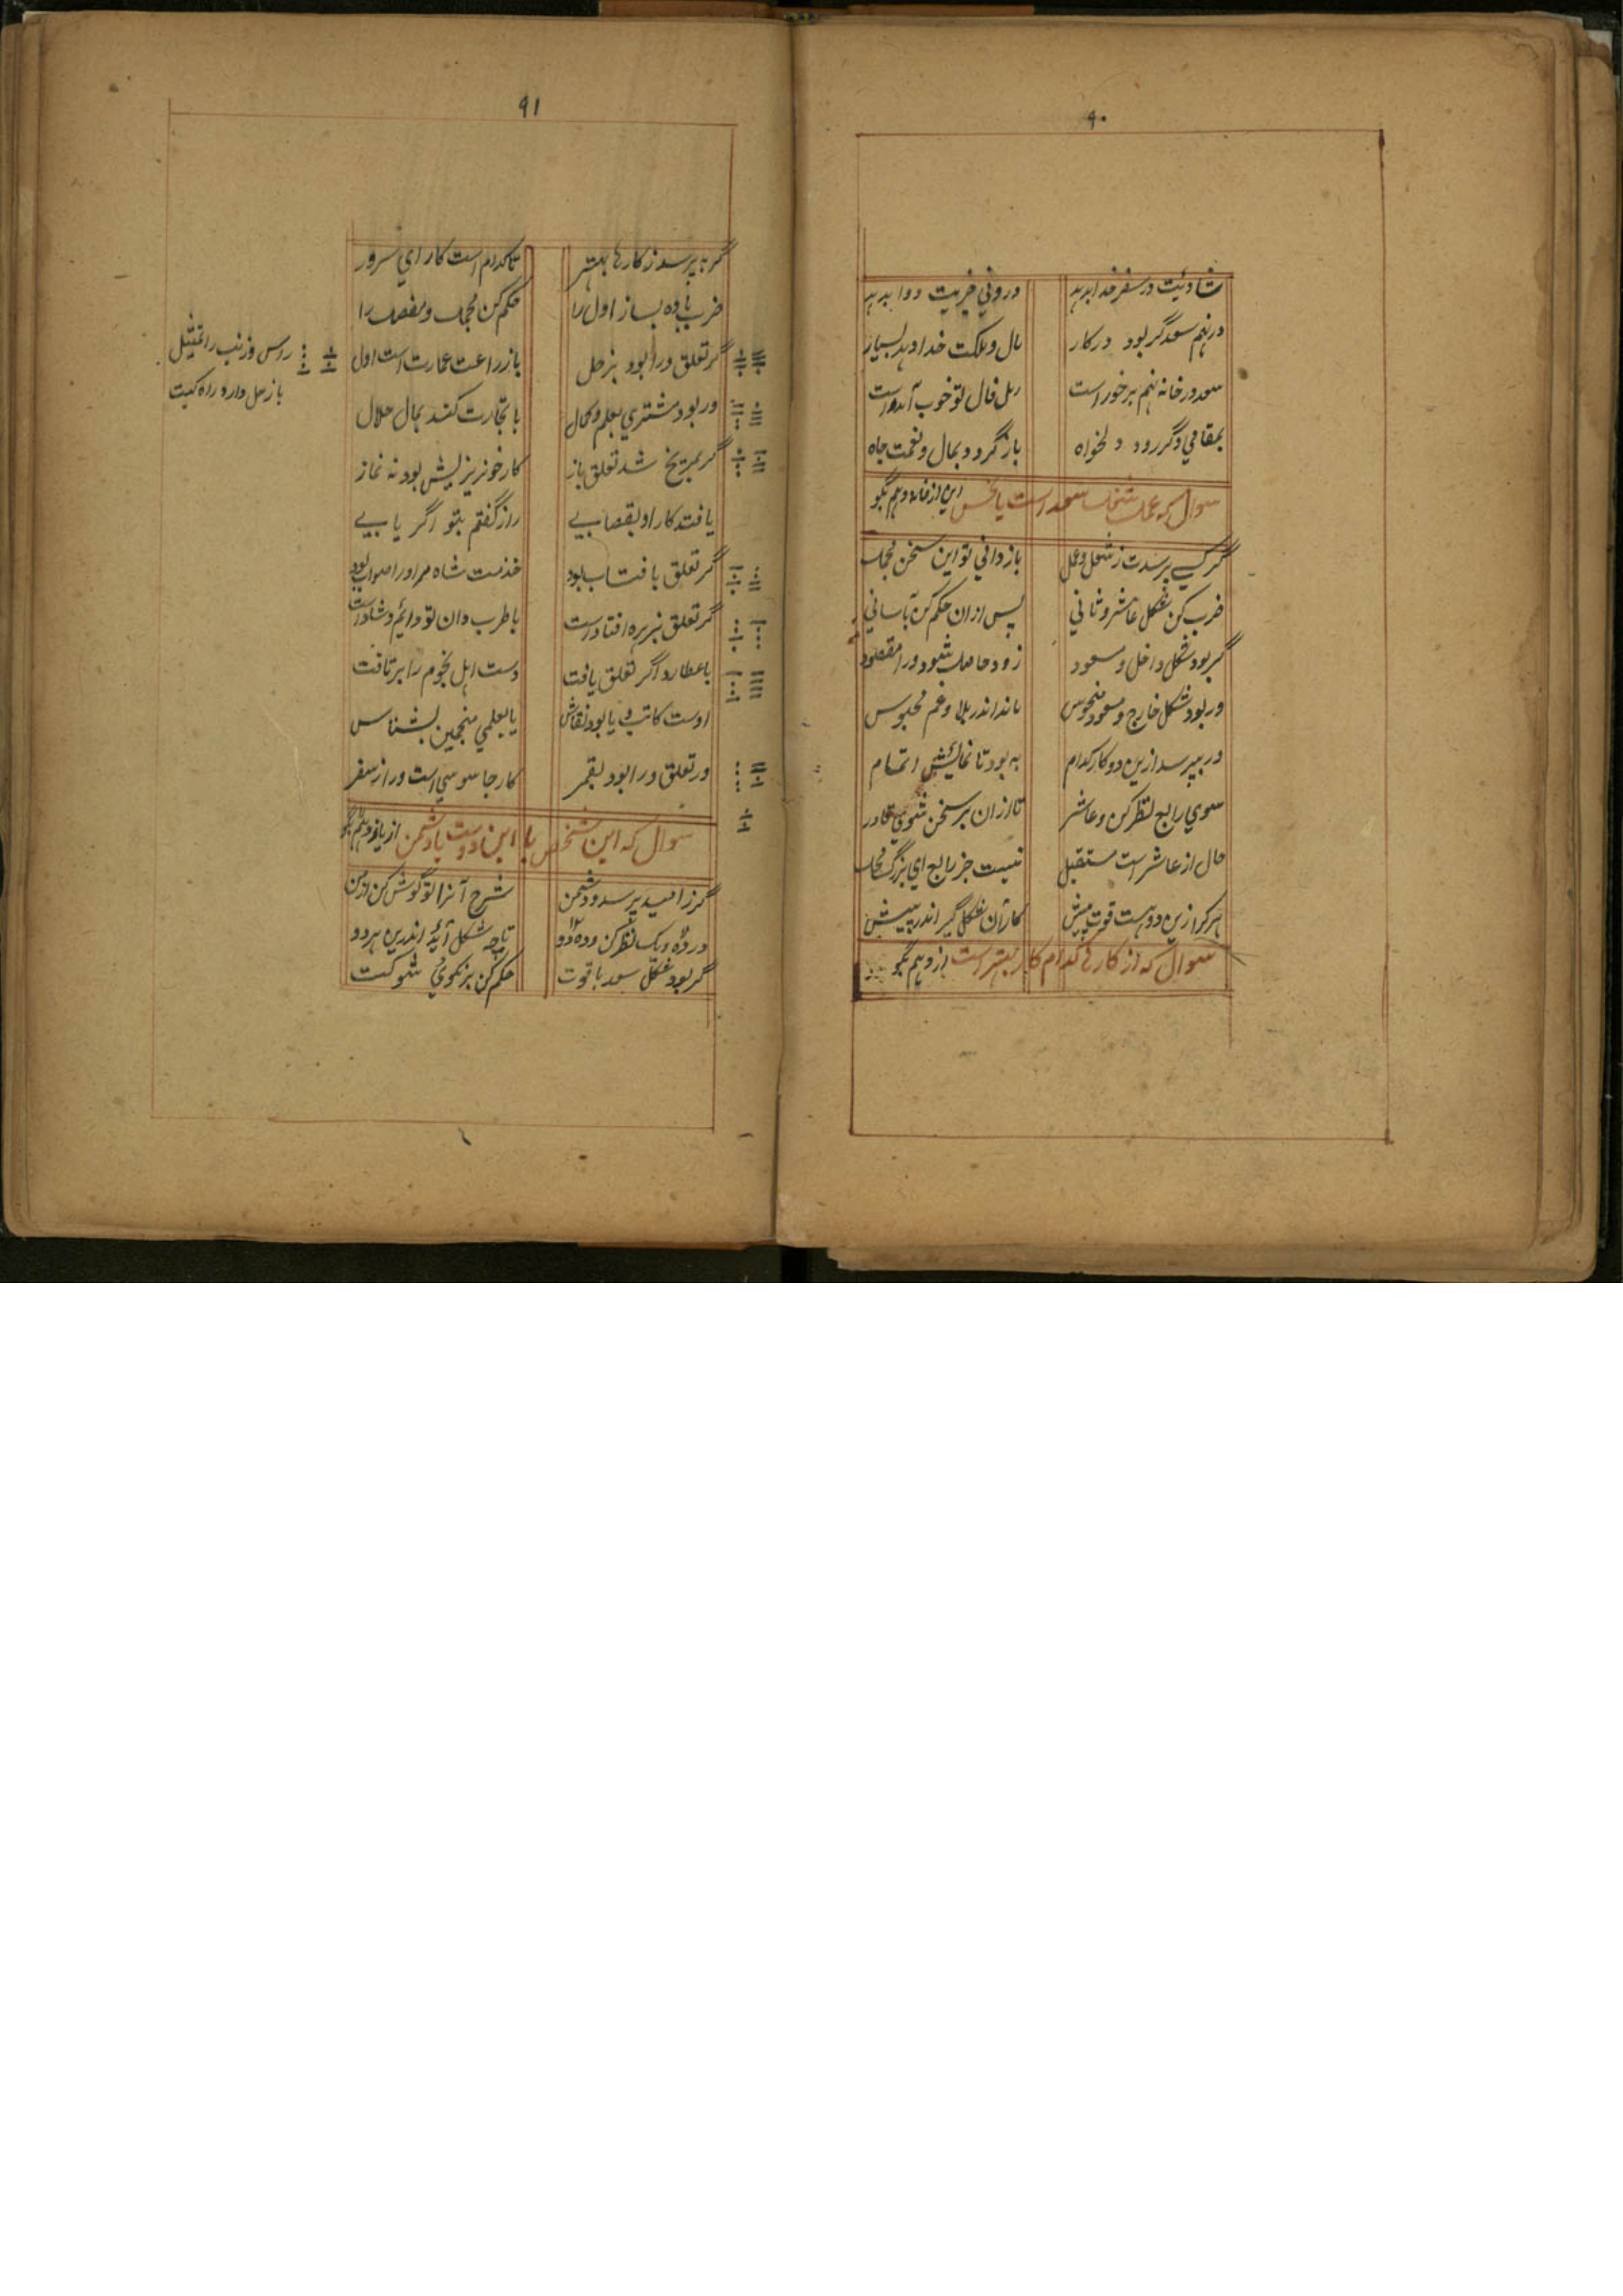 ۹۰
شادئیت در سفر خدا بدهد دردنی خربیت دوا بدهد
در نهم سعد گر بود درکار مال و ملکت خدا دهد بسیار
سعد در خانه نهم برخوراست رمل فال تو خوب آمده است
بمقامی وگر رود دلخواه باز گردد بمال و نعمت جاه
سوال که عمل شغل سعد است یا نحس این از خانه دهم بگو
گر کسی پرسدت ز شغل و عمل باز دانی تو این سخن مجمل
ضرب کن شکل عاشر و ثانی پس ازان حکم کن بآسانی
گر بود شکل داخل و مسعود زود حاصل شود ورا مقصود
ور بود شکل خارج و منحوس ماند اندر بلا و غم محبوس
ور بپرسد ازین دو کار کدام به بود تا نمائیش اتمام
سوی رابع نظر کن و عاشر تا ازان بر سخن شوی قادر
حال از عاشر است مستقبل نیست جز رابع ای بزرگ محل
هر کرا زین دو هست قوت بیش کار آن شکل گیر اندر پیش
سوال که از کارها کدام کار بهتر است از دهم بگو
۹۱
گر بپرسد ز کارها بهتر تا کدام است کار ای سرور
ضرب با ده بساز اول را حکم کن مجمل و مفصل را
گر تعلق ورا بود بزحل بازراعت عمارت است اول
راس و ذنب را تمثیل
با زحل دارد راه کیت
ور بود مشتری بعلم و کمال با تجارت کند بمال حلال
گر بمریخ شد تعلق باز کار خونریزیش بود نه نماز
یافت کار او بقصابی راز گفتم بتو اگر یابی
گر تعلق بافتاب بود خدمت شاه مر اورا صواب بود
گر تعلق بزهره افتاد است باطرب دان تو دائم و شاد است
با عطارد اگر تعلق یافت دست اهل نجوم را برتافت
اوست کاتب و یا بود نقاش یا بعلمی منجمین بشناس
ور تعلق ورا بود بقمر کار جاسوسی است وراز سفر
سوال که این شخص با این دوست یا دشمن از یازدهم بگو
گر ز امید پرسد و دشمن شرح آنرا تو گوش کن از من
در ده و یک نظر کن و ده و دو تا چه شکل آید اندرین هر دو
گر بود شکل سعد با قوت حکم کن بر نکوی شوکت